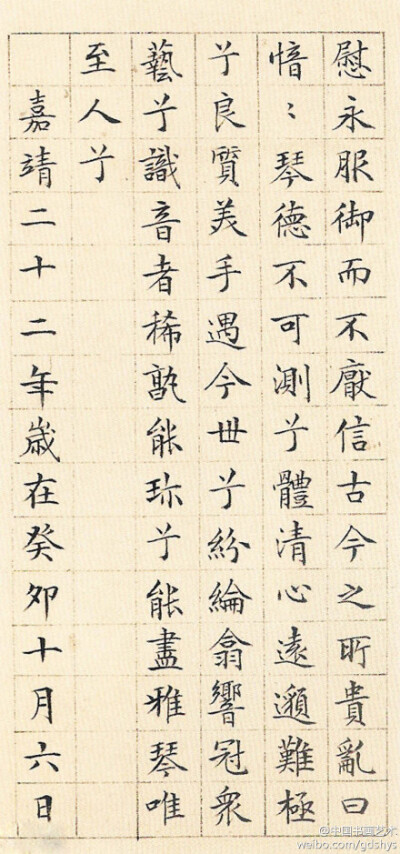 慰永服御而不厭信古今之所貴亂曰
愔〻琴德不可測兮體清心遠邈難極
兮良質美手遇今世兮紛綸翕響冠衆
藝兮識音者稀孰能珎兮能盡雅琴唯
至人兮
嘉靖二十二年歲在癸卯十月六日
@中国书画艺术
weibo.com/gdshys